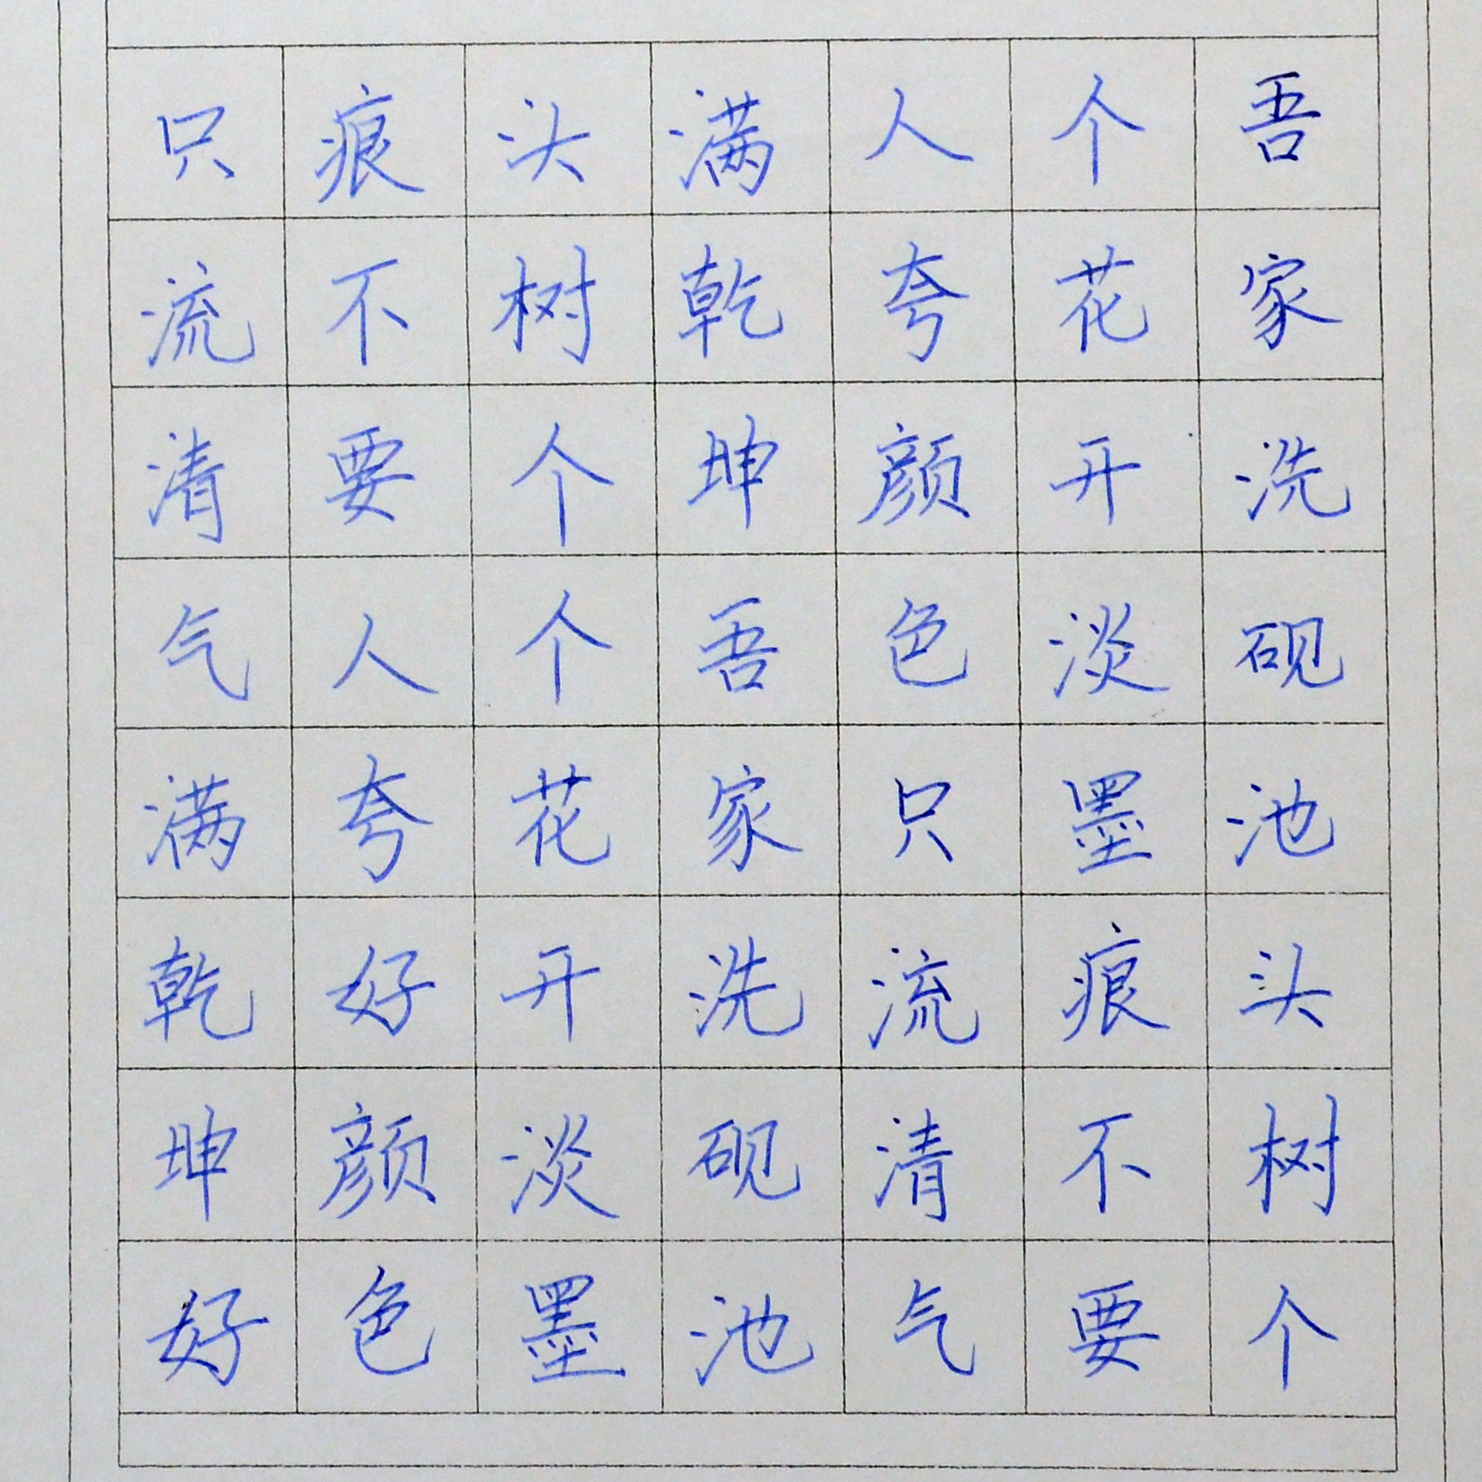 吾家洗砚池头树个
个花开淡墨痕不要
人夸颜色只流清气
满乾坤吾家洗砚池
头树个个花开淡墨
痕不要人夸好颜色
只流清气满乾坤好